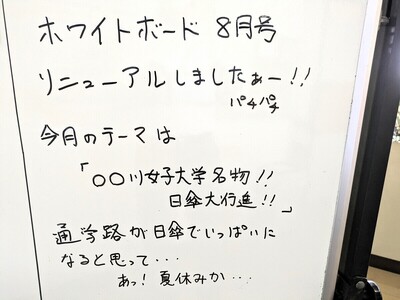 ホワイトボード 8月号
リニューアルしましたぁー!!
パチパチ
今月のテーマは
「〇〇川女子大学名物!!
日傘大行進!!」
通学路が日傘でいっぱいに
なると思って・・・
あっ! 夏休みか・・・